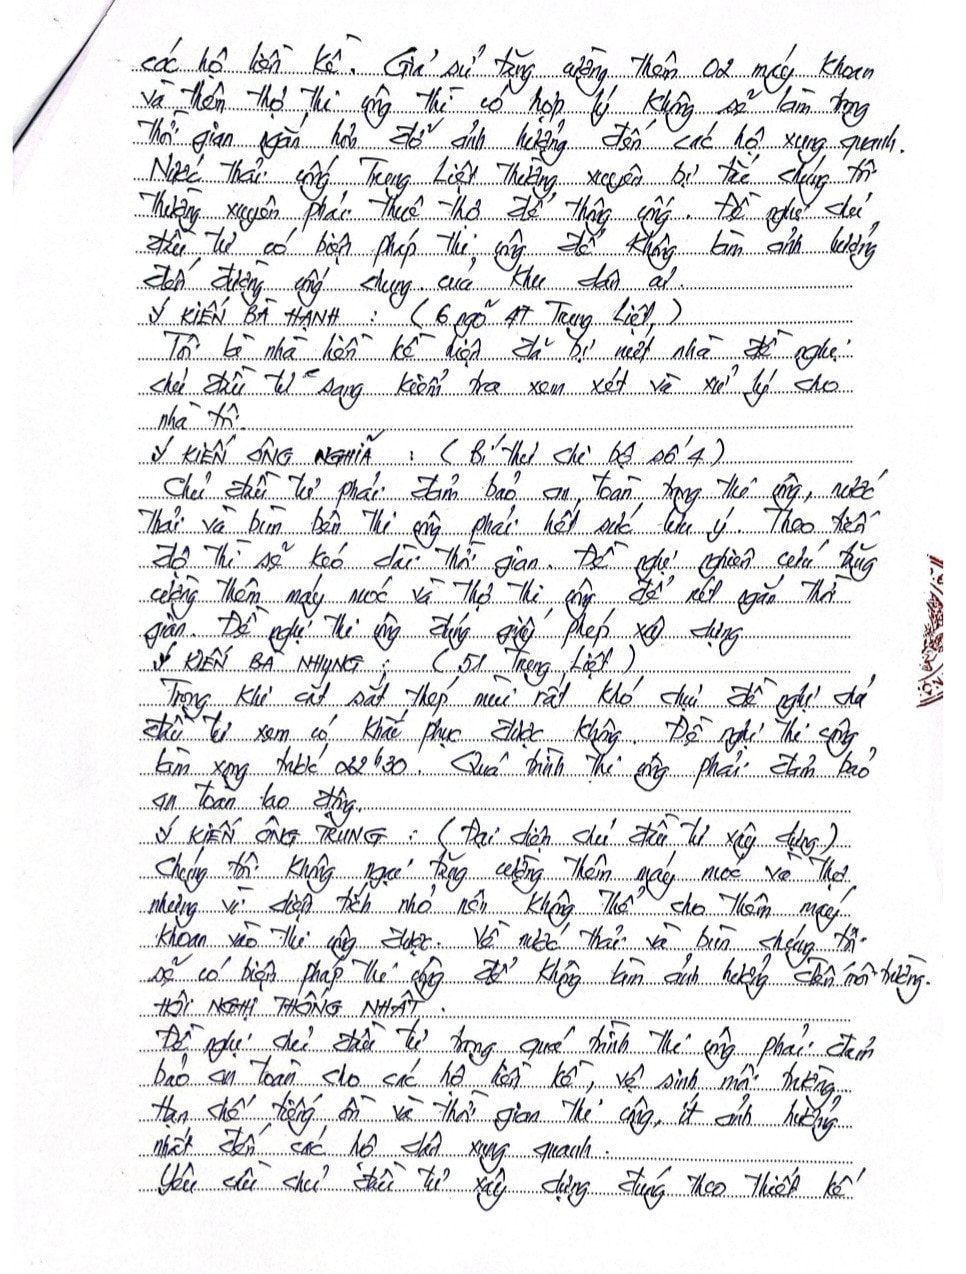 các hộ liền kề. Giả sử tăng cường thêm 02 máy khoan
và thêm thợ thi công thì có hợp lý không sẽ làm trong
thời gian ngắn hơn đỡ ảnh hưởng đến các hộ xung quanh.
Nước thải cống Trọng Liệt thường xuyên bị tắc chúng tôi
thường xuyên phải thuê thợ để thông cống. Đề nghị chủ
đầu tư có biện pháp thi công để không làm ảnh hưởng
đến đường cống chung của khu dân cư.
Ý KIẾN BÀ HẠNH : ( 6 ngõ 47 Trọng Liệt )
Tôi là nhà liền kề hiện đã bị nứt nhà đề nghị
chủ đầu tư sang kiểm tra xem xét và xử lý cho
nhà tôi.
Ý KIẾN ÔNG NGHĨA : ( Bí thư chi bộ số 4 )
Chủ đầu tư phải đảm bảo an toàn trong thi công, nước
thải và bùn bẩn thi công phải hết sức lưu ý. Theo tiến
độ thì sẽ kéo dài thời gian. Đề nghị nghiên cứu tăng
cường thêm máy móc và thợ thi công để rút ngắn thời
gian. Đề nghị thi công đúng giấy phép xây dựng
Ý KIẾN BÀ NHUNG : ( 51 Trọng Liệt )
Trong khi cắt sắt thép mùi rất khó chịu đề nghị chủ
đầu tư xem có khắc phục được không. Đề nghị thi công
làm xong trước 22h30. Quá trình thi công phải đảm bảo
an toàn lao động.
Ý KIẾN ÔNG TRUNG : ( Đại diện chủ đầu tư xây dựng )
Chúng tôi không ngại tăng cường thêm máy móc và thợ
nhưng vì diện tích nhỏ nên không thể cho thêm máy
khoan vào thi công được. Về nước thải và bùn chúng tôi
sẽ có biện pháp thi công để không làm ảnh hưởng đến môi trường.
HỘI NGHỊ THỐNG NHẤT .
Đề nghị chủ đầu tư trong quá trình thi công phải đảm
bảo an toàn cho các hộ liền kề, vệ sinh môi trường
hạn chế tiếng ồn và thời gian thi công, ít ảnh hưởng
nhất đến các hộ dân xung quanh.
Yêu cầu chủ đầu tư xây dựng đúng theo thiết kế